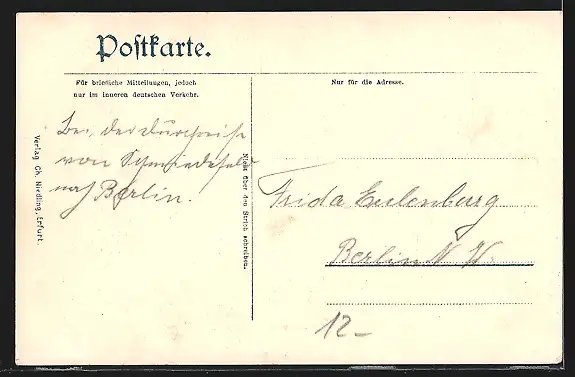 Postkarte.
Für briefliche Mitteilungen, jedoch
nur im inneren deutschen Verkehr.
Nur für die Adresse.
Bei der Durchreise
von Schmiedefeld
nach Berlin.
Verlag Ch. Niedling, Erfurt.
Nicht über den Strich schreiben.
Frida Eulenburg
Berlin N. W.
12-